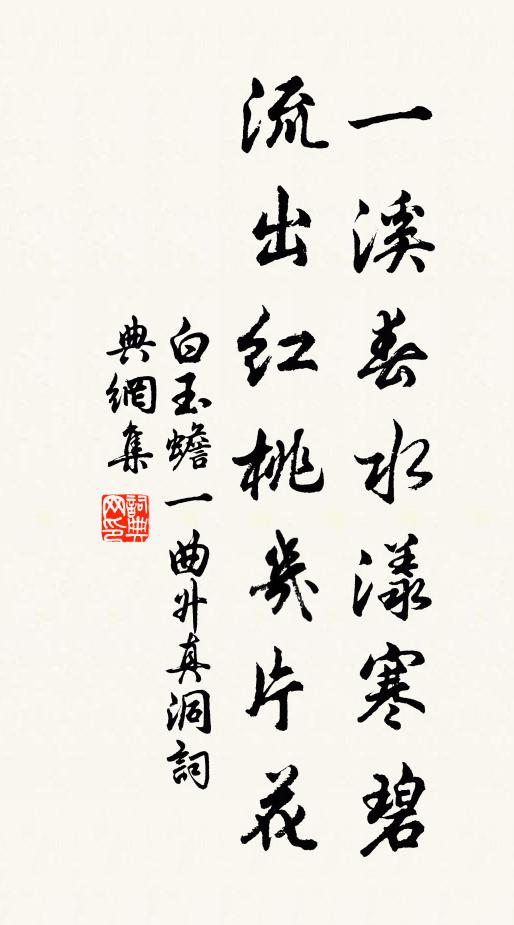 一溪春水漾寒碧
流出紅桃幾片花
白玉蟾一曲升真洞詞
典網集
詞典網印